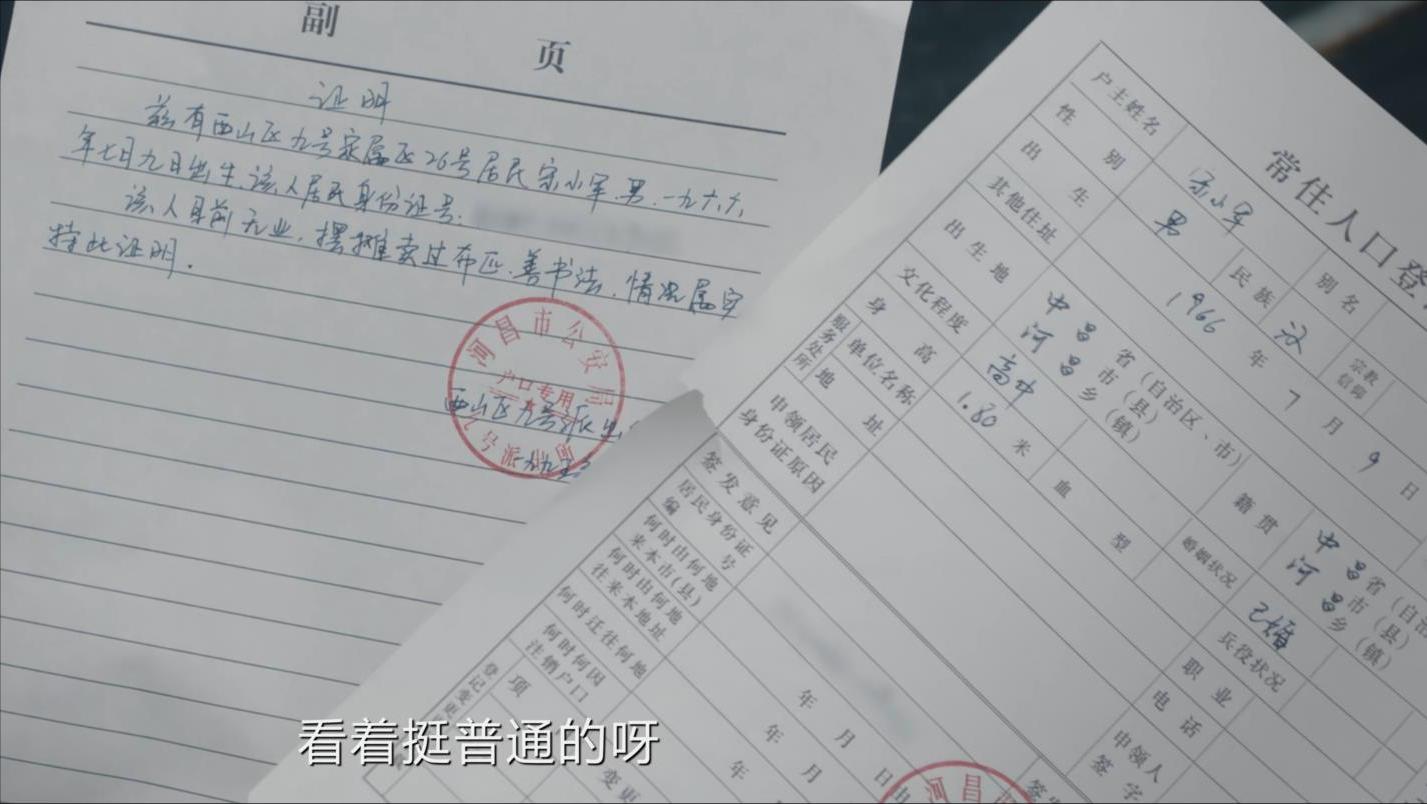 副页
证明
兹有西山区九号家属区26号居民宋小军.男.一九六六
年七月九日出生.该人居民身份证号.
该人目前无业.摆摊卖过布匹.善书法.情况属实
特此证明.
河昌市公安局
户口专用
西山区九号派出
常住人口登
户主姓名 宋小军 别名
性别 男 民族 汉 宗教信仰
出生 1966年7月9日
其他住址
出生地 中昌省(自治区、市) 河昌市(县) 乡(镇) 籍贯 中昌省(自治 河昌市(县) 乡(镇)
文化程度 高中 婚姻状况 已婚 兵役状况
身高 1.80米 血型 职业
服务处所 单位名称 电话
地址
申领居民身份证原因 申领人签字
签发意见
居民身份证编号
何时由何地来本市(县)
何时由何地往来本地址
何时迁往何地 年月日
何时何因注销户口 年月
登记 项 变更 年
河昌
看着挺普通的呀